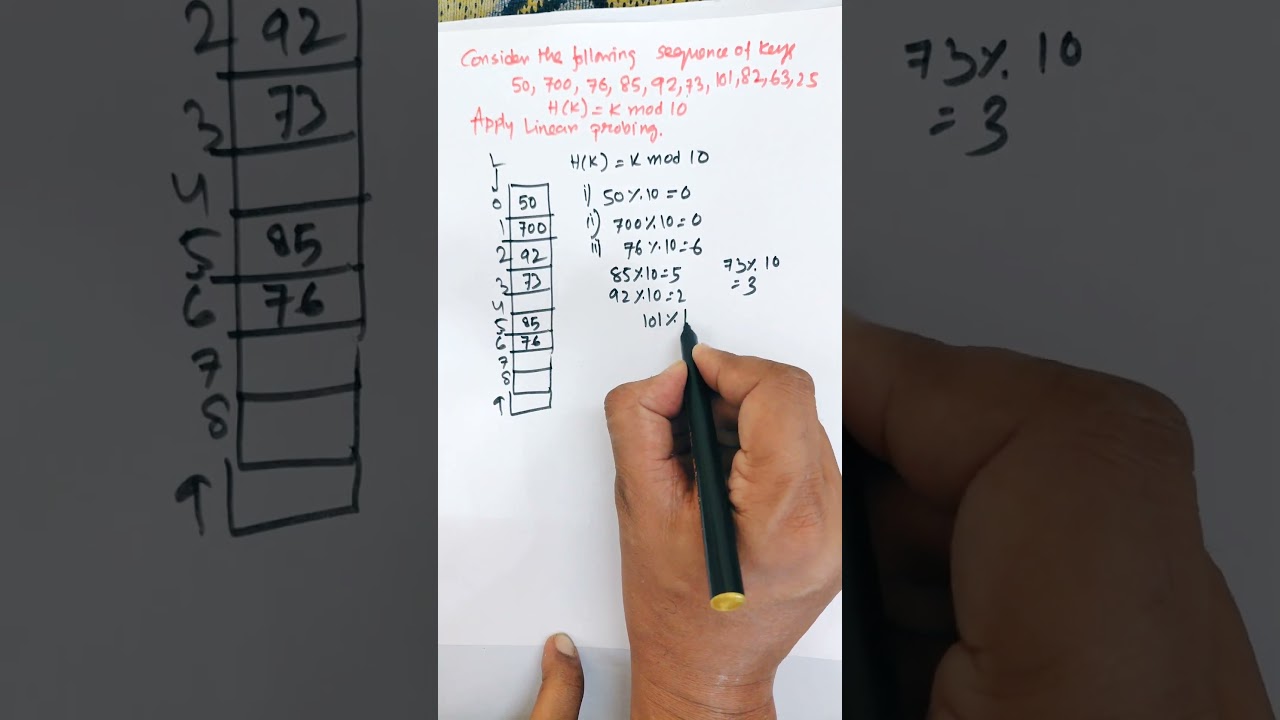 Consider the following sequence of keys
50, 700, 76, 85, 92, 73, 101, 82, 63, 25
H(K) = K mod 10
Apply Linear probing.
L
H(K) = K mod 10
0 50
1 700
2 92
3 73
4
5 85
6 76
7
8
9
i) 50 % 10 = 0
ii) 700 % 10 = 0
iii) 76 % 10 = 6
85 % 10 = 5
92 % 10 = 2
73 % 10
= 3
101 % 1
2 92
3 73
4
5 85
6 76
7
8
9
73 % 10
= 3